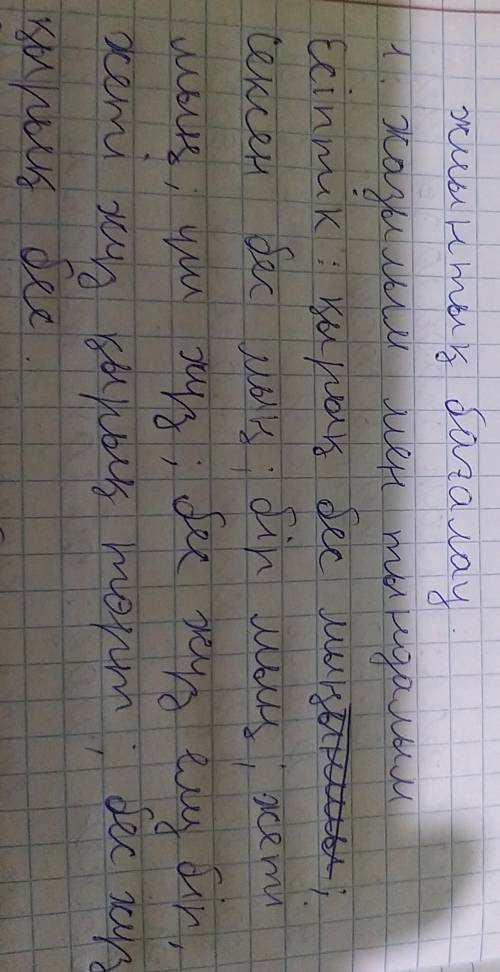 жиынтық бағалау.
1. Жазылым мен тыңдалым
Есіптік: қырық бес мың;
сексен бес мың; бір мың; жеті
мың; үш жүз; бес жүз елу бір;
жеті жүз қырық төрт; бес жүз
қырық бес.